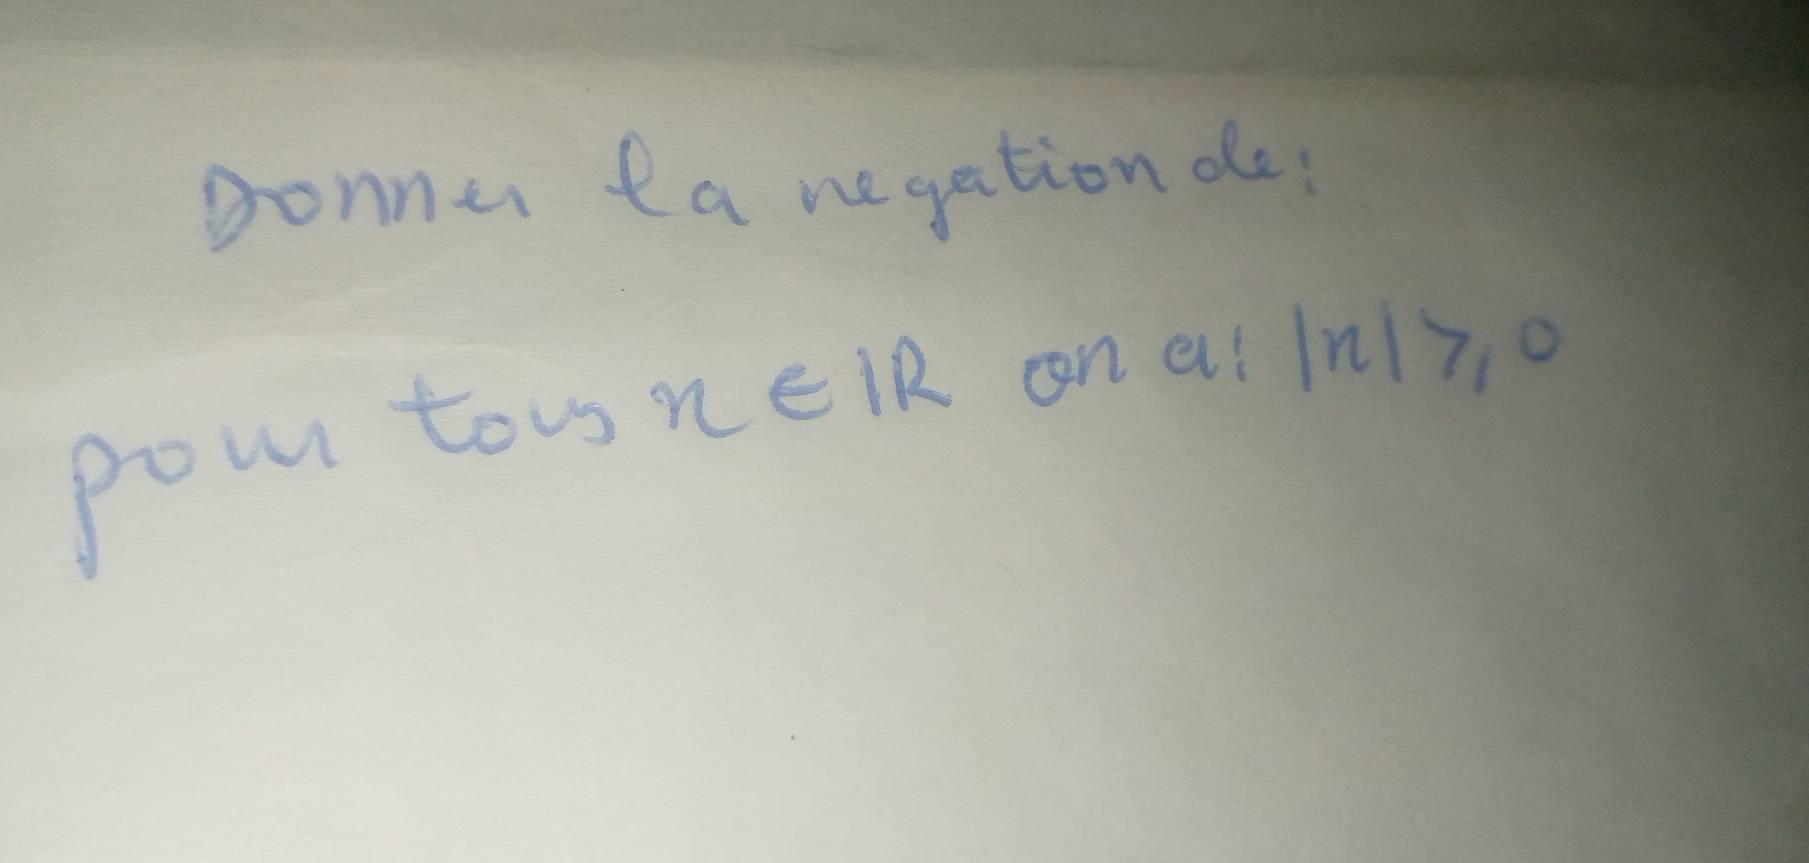 Donner la negation de:
pour tous x ∈ IR on a: |x| ⩾ 0